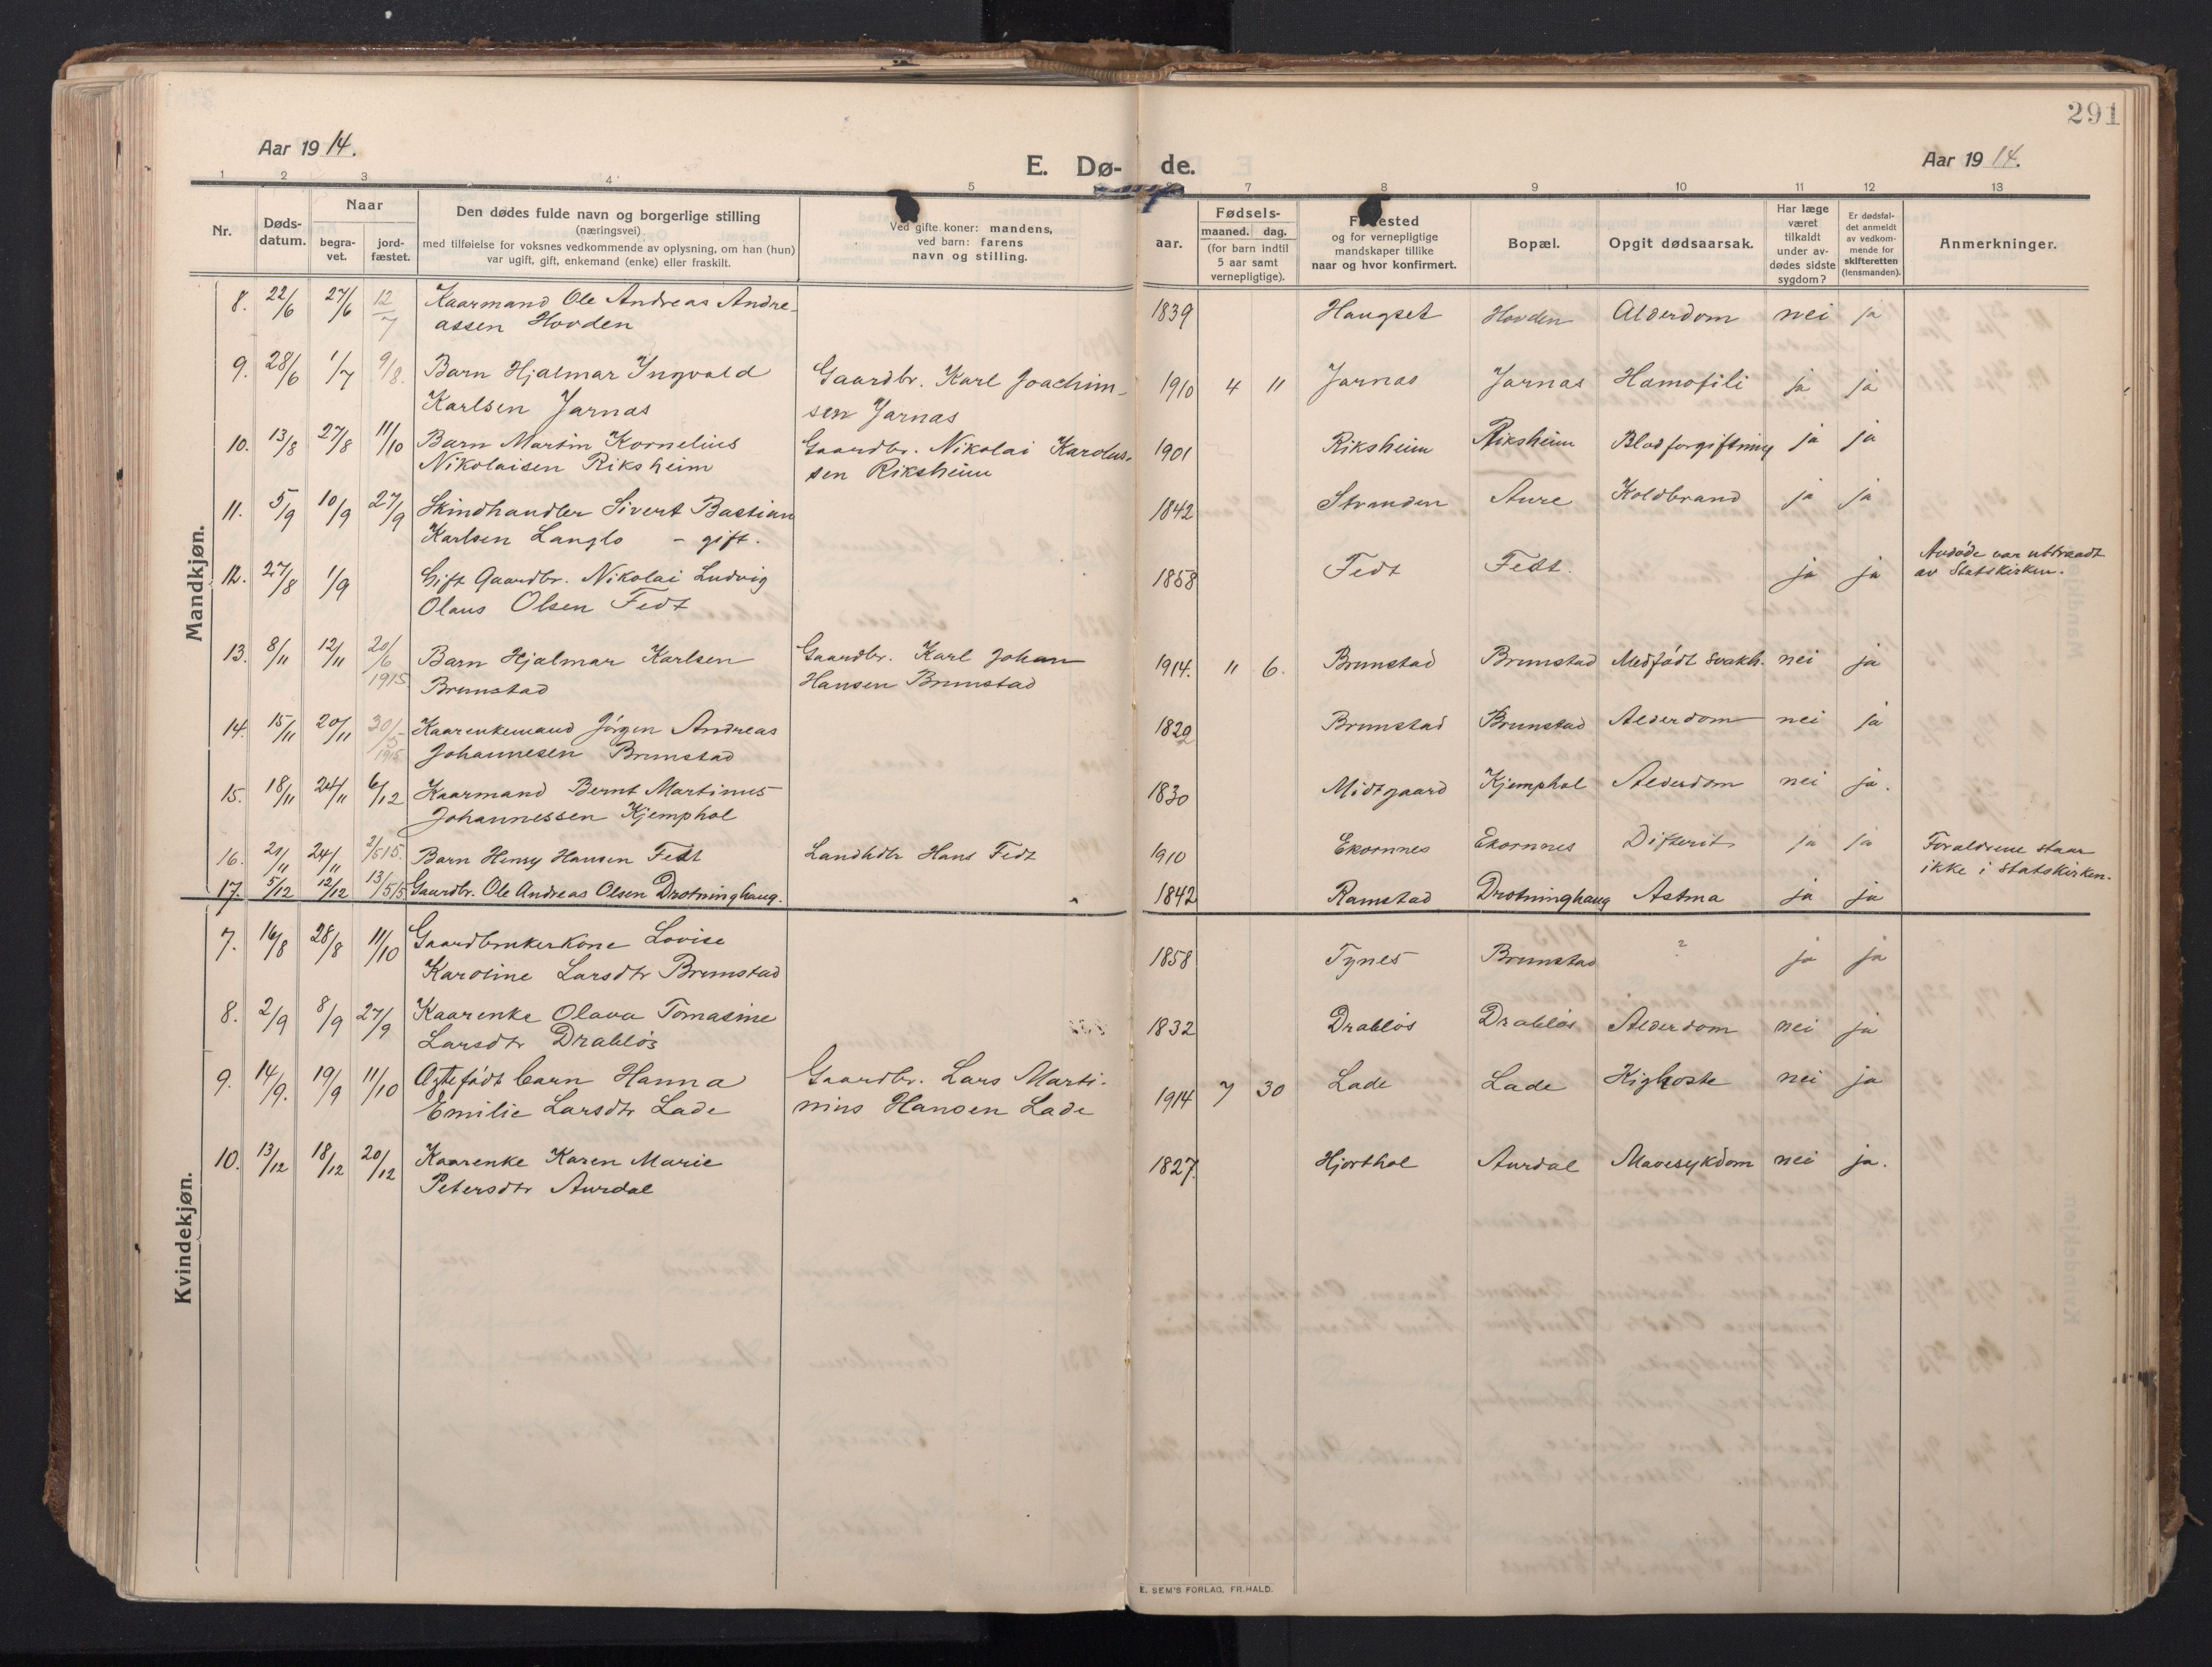 291
Aar 1914.
E. Dø- de.
Aar 1914.
1 2 3 4 5 7 8 9 10 11 12 13
Nr.
Døds-
datum.
Naar
begra-
vet.
jord-
fæstet.
Den dødes fulde navn og borgerlige stilling
(næringsvei)
med tilføielse for voksnes vedkommende av oplysning, om han (hun)
var ugift, gift, enkemand (enke) eller fraskilt.
Ved gifte koner: mandens,
ved barn: farens
navn og stilling.
aar.
Fødsels-
maaned. dag.
(for barn indtil
5 aar samt
vernepligtige).
og for vernepligtige
mandskaper tillike
naar og hvor konfirmert.
Bopæl.
Opgit dødsaarsak.
Har læge
været
tilkaldt
under av-
dødes sidste
sygdom?
Er dødsfal-
det anmeldt
av vedkom-
mende for
skifteretten
(lensmanden).
Anmerkninger.
Mandkjøn.
8. 22/6 27/6 12/7 Kaarmand Ole Andreas Andre- 1839 Haugset Hovden Alderdom nei ja
assen Hovden
9. 28/6 1/7 9/8. Barn Hjalmar Yngvald Gaardbr. Karl Joachim- 1910 4 11 Jarnas Jarnas Hæmofili ja ja
Karlsen Jarnas sen Jarnas
10. 13/8 27/8 11/10 Barn Martin Kornelius Gaardbr. Nikolai Karolus- 1901 Riksheim Riksheim Blodforgiftning ja ja
Nikolaisen Riksheim sen Riksheim
11. 5/9 10/9 27/9 Skindhandler Sivert Bastian 1842 Stranden Aure Koldbrand ja ja
Karlsen Langlo - gift.
12. 27/8 1/9 Gift Gaardbr. Nikolai Ludvig 1858 Fedt Fedt. ja ja Avdøde var uttraadt
av Statskirken.
Olaus Olsen Fedt
13. 8/11 12/11 20/6 1915 Barn Hjalmar Karlsen Gaardbr. Karl Johan 1914. 11 6. Brunstad Brunstad Medfødt svakh. nei ja
Brunstad Hansen Brunstad
14. 15/11 20/11 30/5 1915 Kaarenkemand Jörgen Andreas 1829 Brunstad Brunstad Alderdom nei ja
Johannesen Brunstad
15. 18/11 24/11 6/12 Kaarmand Bernt Martinus 1830 Midtgaard Kjemphol Alderdom nei ja.
Johannessen Kjemphol
16. 21/11 24/11 2/5 15. Barn Henry Hansen Fedt Landhdlr Hans Fedt 1910 Ekornnes Ekornnes Difterit ja ja Forældrene staar
ikke i Statskirken.
17. 5/12 12/12 13/5 15 Gaardbr. Ole Andreas Olsen Drotninghaug. 1842 Ramstad Drotninghaug Astma ja ja
Kvindekjøn.
7. 16/8 28/8 11/10 Gaardbrukerkone Lovise 1858 Tynes Brunstad ? ja ja
Karoline Larsdtr Brunstad
8. 2/9 8/9 27/9 Kaarenke Olava Tomasine 1832 Drabløs Drabløs Alderdom nei ja
Larsdtr Drabløs
9. 14/9. 19/9 11/10 Ægtefødt barn Hanna Gaardbr. Lars Marti- 1914 7 30 Lade Lade Kighoste nei ja
Emilie Larsdtr Lade nius Hansen Lade
10. 13/12 18/12 20/12 Kaarenke Karen Marie 1827. Hjorthol Aurdal Mavesykdom nei ja.
Petersdtr Aurdal
E. SEM'S FORLAG, FR.HALD.